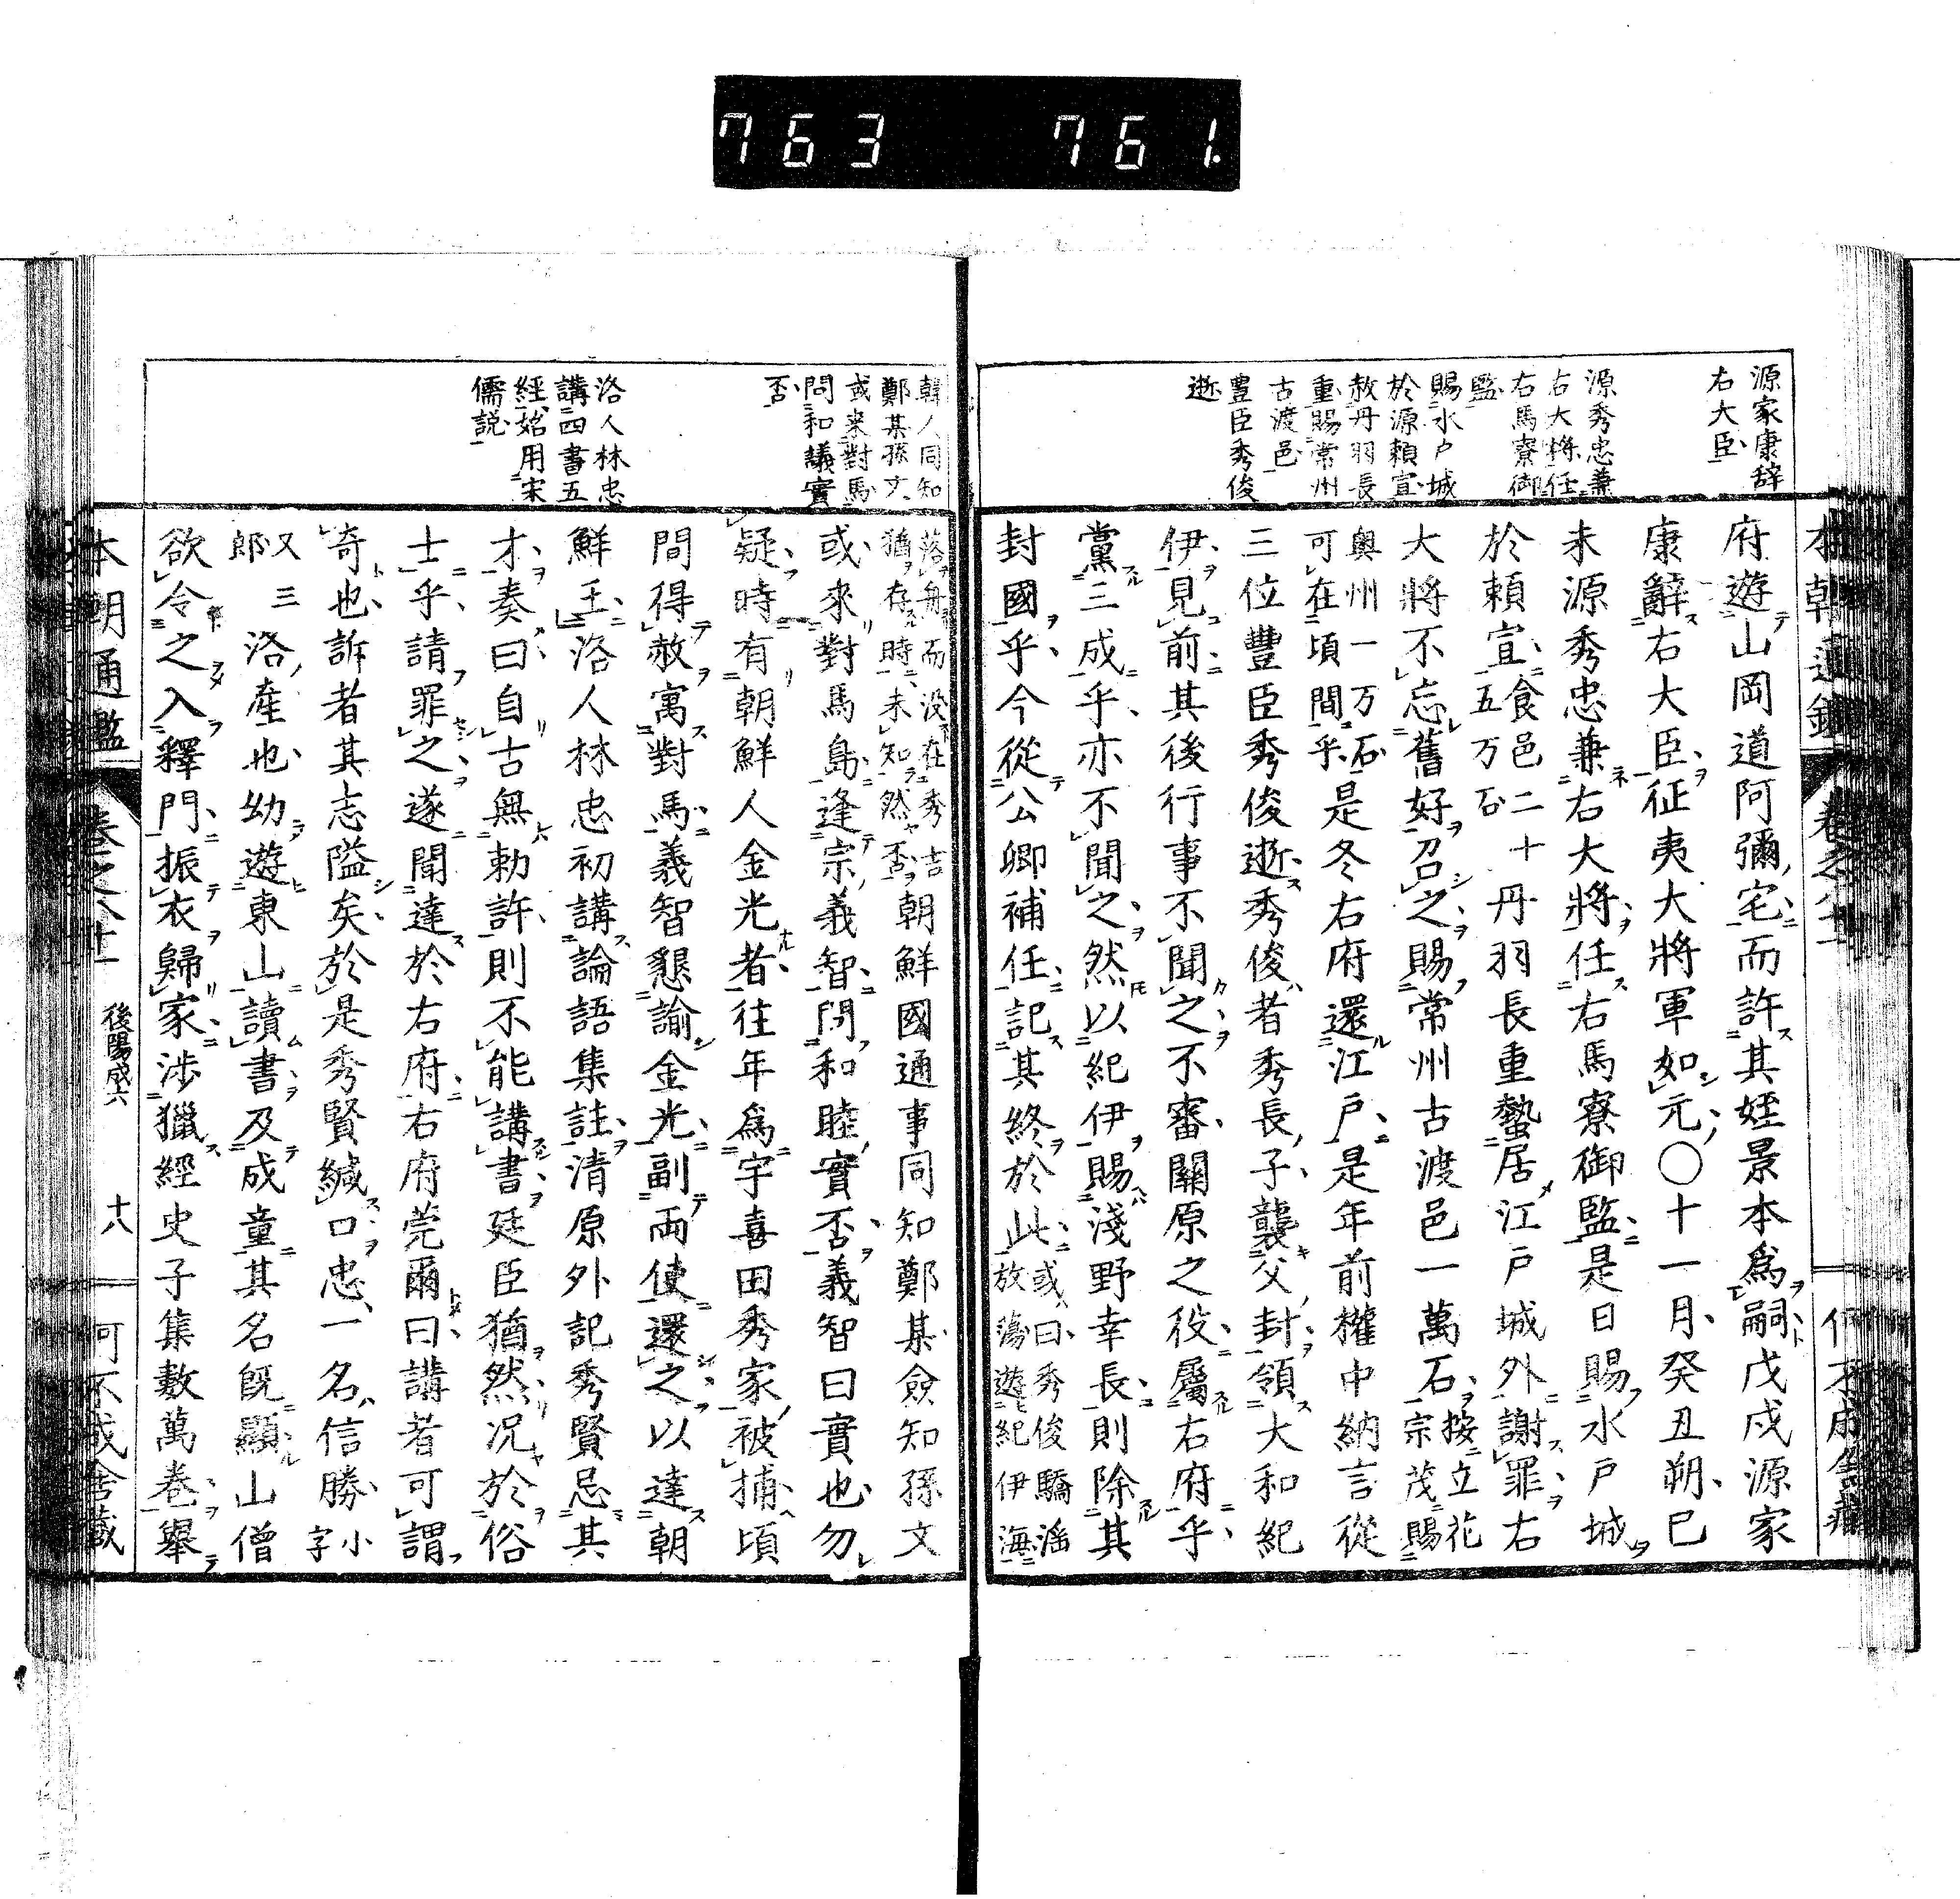 763 761.
源家康辞
右大臣
源秀忠兼
右大將任
右馬寮御
監
賜水戸城
於源頼宣
赦丹羽長
重賜常州
古渡邑
豊臣秀俊
逝
府遊山岡道阿彌宅而許其姪景本爲嗣戊戌源家
康辭右大臣征夷大將軍如元〇十一月癸丑朔巳
未源秀忠兼右大將任右馬寮御監是日賜水戸城
於頼宣食邑二十五万石丹羽長重蟄居江戸城外謝罪右
大將不忘舊好召之賜常州古渡邑一萬石按立花宗茂賜
奧州一万石可在頃間乎是冬右府還江戸是年前權中納言從
三位豐臣秀俊逝秀俊者秀長子襲父封領大和紀
伊見前其後行事不聞之不審關原之役屬右府乎
黨三成乎亦不聞之然以紀伊賜淺野幸長則除其
封國乎今從公卿補任記其終於此或曰秀俊驕滛放蕩遊紀伊海
韓人同知
鄭某孫文
或来對馬
問和議實
否
洛人林忠
講四書五
經始用宋
儒説
落舟而没在秀吉猶存時未知然否朝鮮國通事同知鄭某僉知孫文
或來對馬島逢宗義智問和睦實否義智曰實也勿
疑時有朝鮮人金光者往年爲宇喜田秀家被捕頃
間得赦寓對馬義智懇諭金光副兩使還之以達朝
鮮王洛人林忠初講論語集註清原外記秀賢忌其
才奏曰自古無勅許則不能講書廷臣猶然况於俗
士乎請罪之遂聞達於右府右府莞爾曰講者可謂
奇也訴者其志隘矣於是秀賢緘口忠一名信勝小字
又三郎洛産也幼遊東山讀書及成童其名既顯山僧
欲令之入釋門振衣歸家涉獵經史子集數萬卷舉
本朝通鑑
後陽成六
十八
何不成舍藏